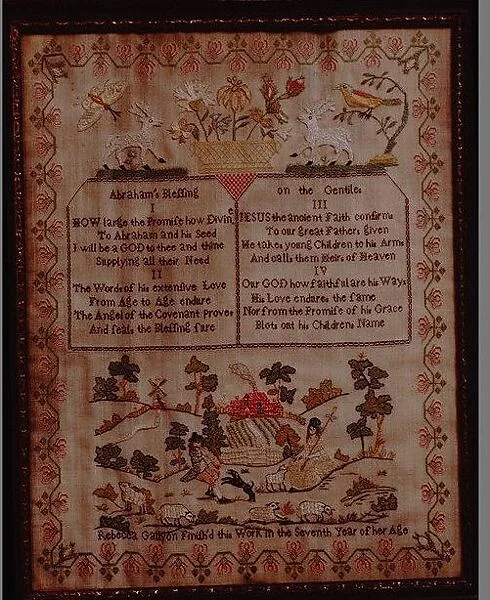 Abraham's Bleſſing on the Gentiles
I
HOW large the Promiſe how Divine
To Abraham and his Seed
I will be a GOD to thee and thine
Supplying all their Need
II
The Words of his extenſive Love
From Age to Age endure
The Angel of the Covenant proves
And ſeals the Bleſſing ſure
III
JESUS the ancient Faith confirms
To our great Fathers given
He takes young Children to his Arms
And calls them Heirs of Heaven
IV
Our GOD how faithful are his Ways
His Love endures the ſame
Nor from the Promiſe of his Grace
Blots out his Childrens Name
Rebecca Finiſh'd this Work in the Seventh Year of her Age